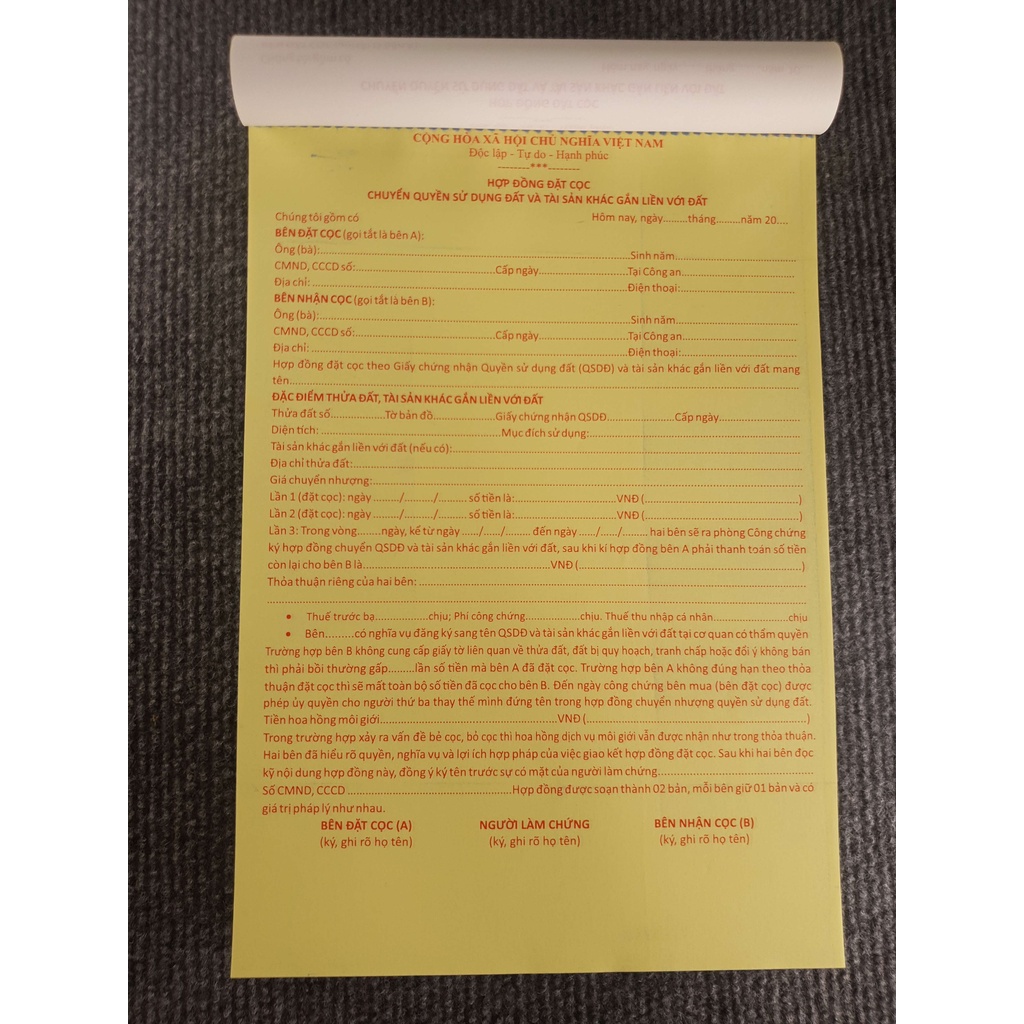 CỘNG HÒA XÃ HỘI CHỦ NGHĨA VIỆT NAM
Độc lập - Tự do - Hạnh phúc
--------***--------
HỢP ĐỒNG ĐẶT CỌC
CHUYỂN QUYỀN SỬ DỤNG ĐẤT VÀ TÀI SẢN KHÁC GẮN LIỀN VỚI ĐẤT
Chúng tôi gồm có Hôm nay, ngày.........tháng.........năm 20....
BÊN ĐẶT CỌC (gọi tắt là bên A):
Ông (bà):.......................................Sinh năm....................
CMND, CCCD số:....................Cấp ngày....................Tại Công an....................
Địa chỉ:.......................................Điện thoại:....................
BÊN NHẬN CỌC (gọi tắt là bên B):
Ông (bà):.......................................Sinh năm....................
CMND, CCCD số:....................Cấp ngày....................Tại Công an....................
Địa chỉ:.......................................Điện thoại:....................
Hợp đồng đặt cọc theo Giấy chứng nhận Quyền sử dụng đất (QSDĐ) và tài sản khác gắn liền với đất mang
tên....................
ĐẶC ĐIỂM THỬA ĐẤT, TÀI SẢN KHÁC GẮN LIỀN VỚI ĐẤT
Thửa đất số...............Tờ bản đồ...............Giấy chứng nhận QSDĐ...............Cấp ngày...............
Diện tích:....................Mục đích sử dụng:....................
Tài sản khác gắn liền với đất (nếu có):....................
Địa chỉ thửa đất:....................
Giá chuyển nhượng:....................
Lần 1 (đặt cọc): ngày ......../........./........ số tiền là:....................VNĐ (....................)
Lần 2 (đặt cọc): ngày ......../........./........ số tiền là:....................VNĐ (....................)
Lần 3: Trong vòng.......ngày, kể từ ngày ...../...../........ đến ngày ...../...../........ hai bên sẽ ra phòng Công chứng
ký hợp đồng chuyển QSDĐ và tài sản khác gắn liền với đất, sau khi kí hợp đồng bên A phải thanh toán số tiền
còn lại cho bên B là....................VNĐ (....................)
Thỏa thuận riêng của hai bên: ....................
....................
• Thuế trước bạ...............chịu; Phí công chứng...............chịu. Thuế thu nhập cá nhân...............chịu
• Bên.........có nghĩa vụ đăng ký sang tên QSDĐ và tài sản khác gắn liền với đất tại cơ quan có thẩm quyền
Trường hợp bên B không cung cấp giấy tờ liên quan về thửa đất, đất bị quy hoạch, tranh chấp hoặc đổi ý không bán
thì phải bồi thường gấp.........lần số tiền mà bên A đã đặt cọc. Trường hợp bên A không đúng hạn theo thỏa
thuận đặt cọc thì sẽ mất toàn bộ số tiền đã cọc cho bên B. Đến ngày công chứng bên mua (bên đặt cọc) được
phép ủy quyền cho người thứ ba thay thế mình đứng tên trong hợp đồng chuyển nhượng quyền sử dụng đất.
Tiền hoa hồng môi giới....................VNĐ (....................)
Trong trường hợp xảy ra vấn đề bẻ cọc, bỏ cọc thì hoa hồng dịch vụ môi giới vẫn được nhận như trong thỏa thuận.
Hai bên đã hiểu rõ quyền, nghĩa vụ và lợi ích hợp pháp của việc giao kết hợp đồng đặt cọc. Sau khi hai bên đọc
kỹ nội dung hợp đồng này, đồng ý ký tên trước sự có mặt của người làm chứng....................
Số CMND, CCCD ....................Hợp đồng được soạn thành 02 bản, mỗi bên giữ 01 bản và có
giá trị pháp lý như nhau.
BÊN ĐẶT CỌC (A) NGƯỜI LÀM CHỨNG BÊN NHẬN CỌC (B)
(ký, ghi rõ họ tên) (ký, ghi rõ họ tên) (ký, ghi rõ họ tên)